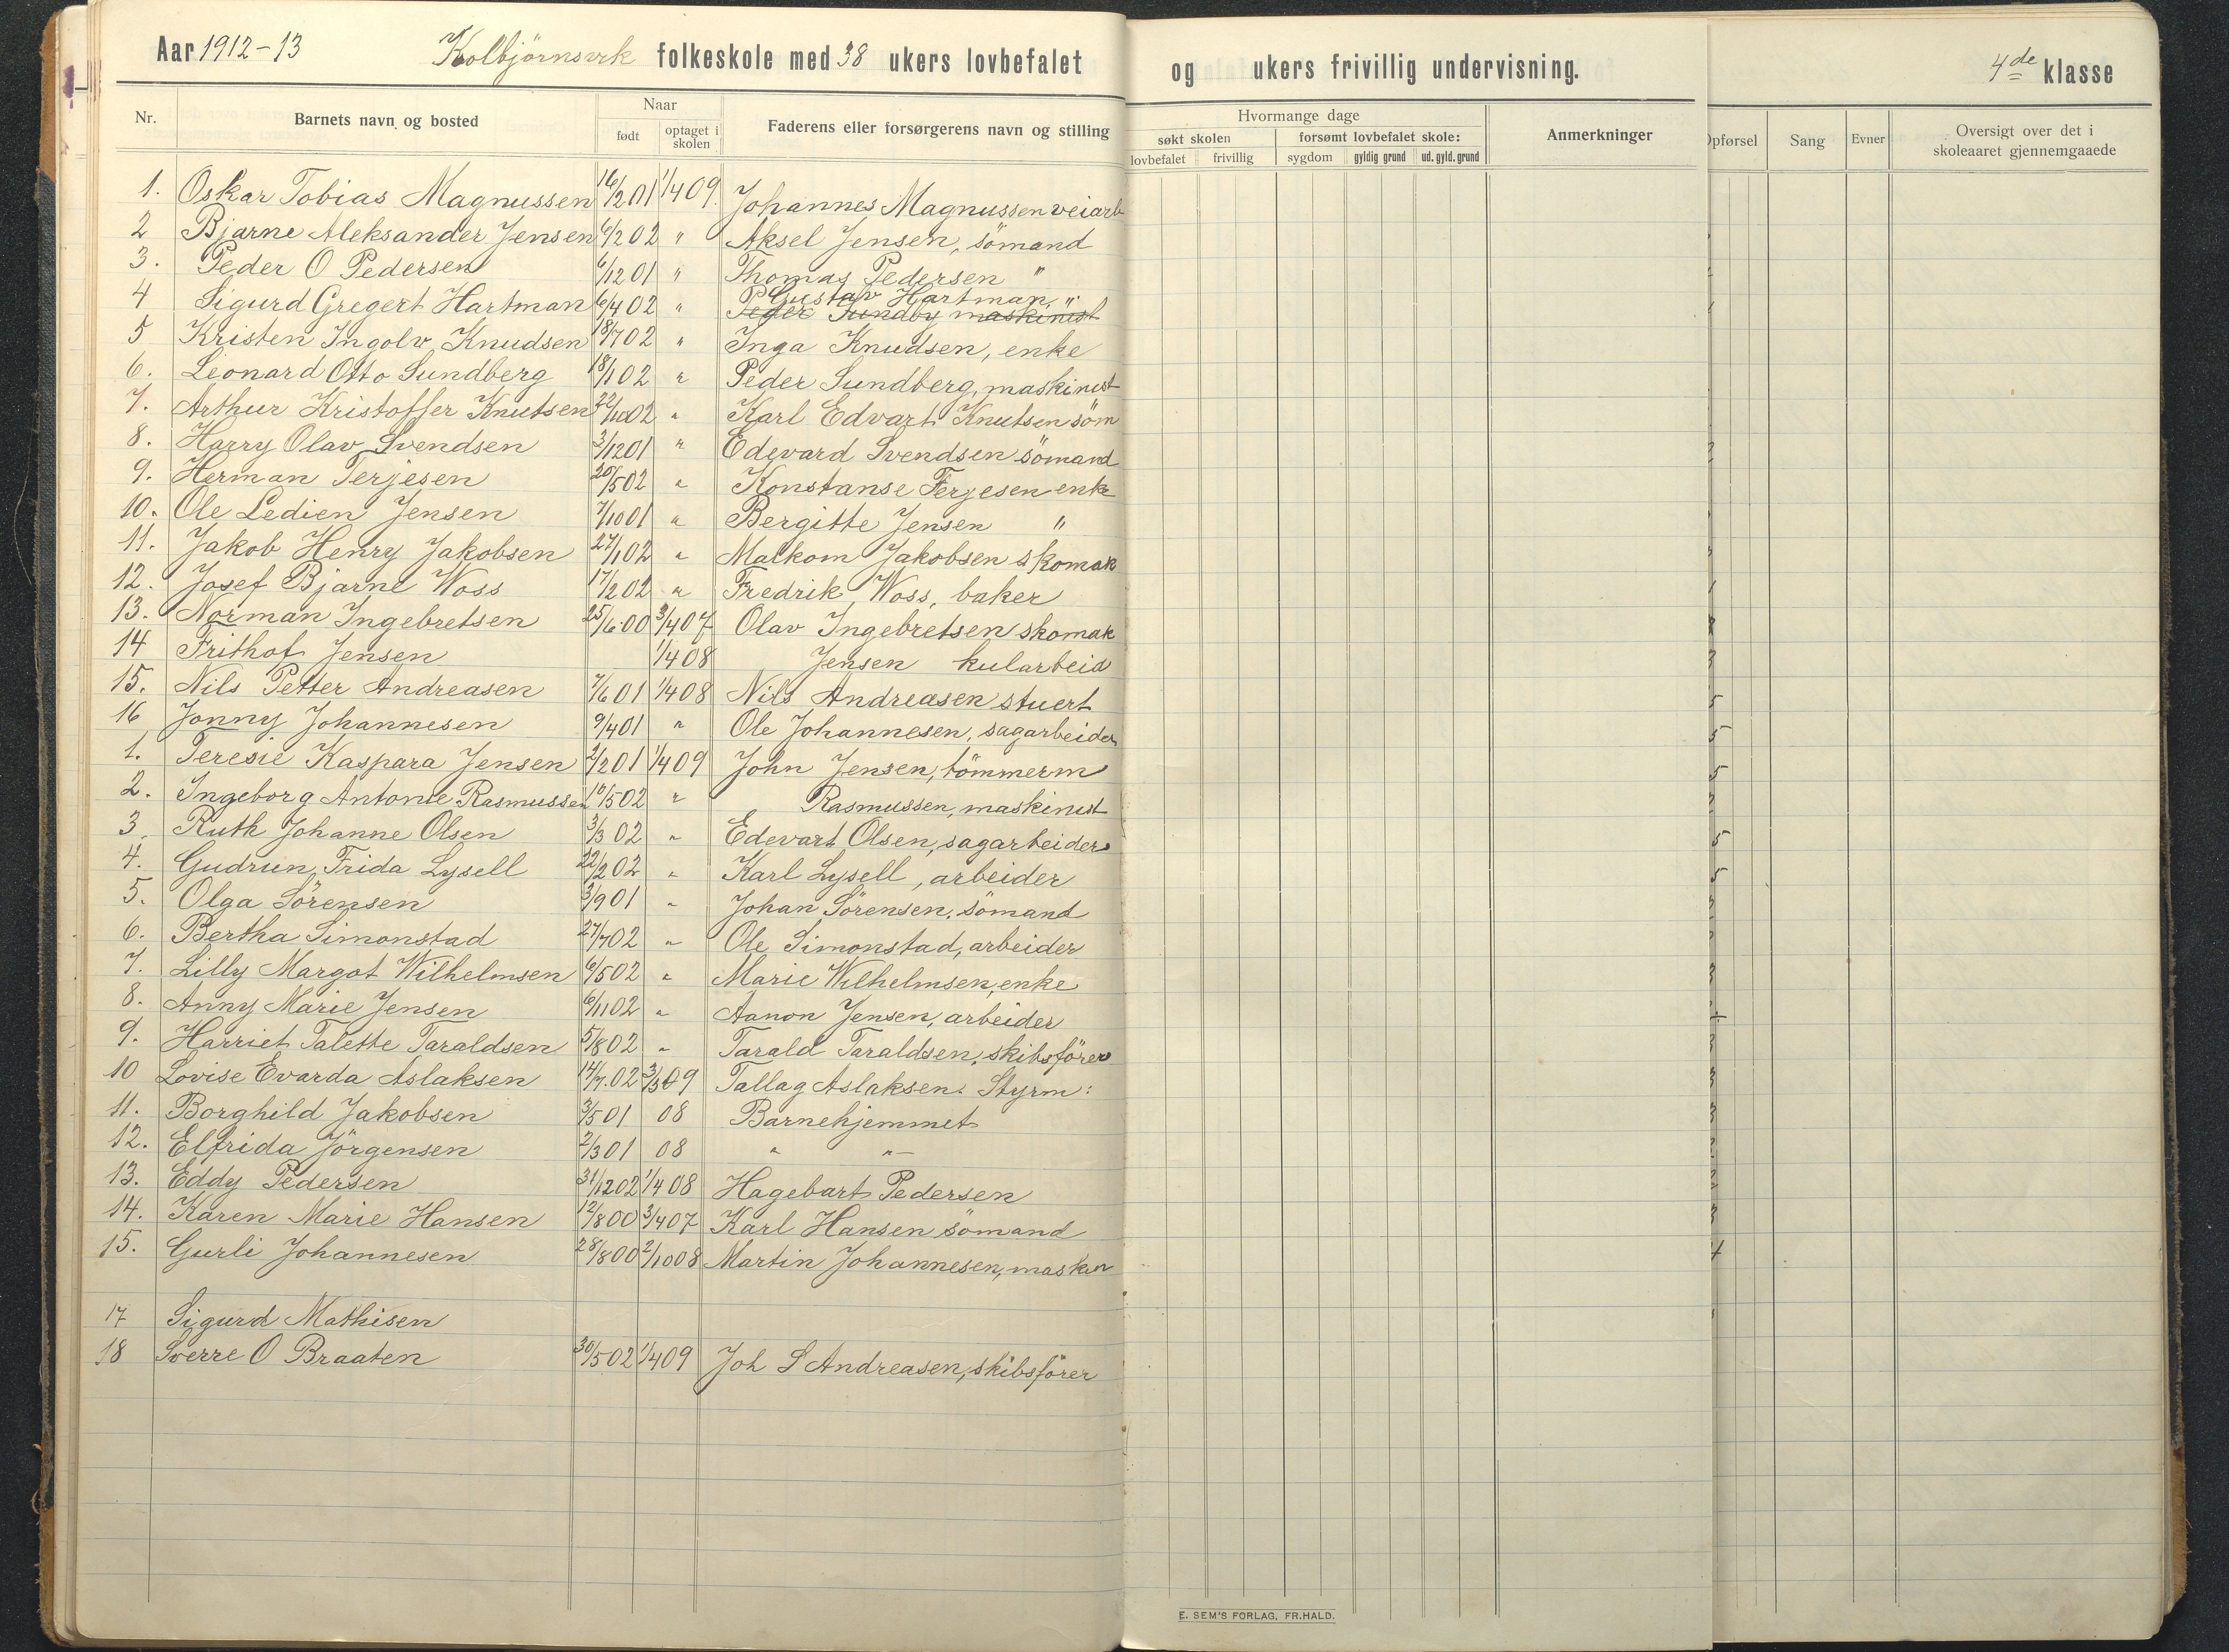 Aar 1912-13 Kolbjörnsvik folkeskole med 38 ukers lovbefalet og ukers frivillig undervisning. 4de klasse
Nr. Barnets navn og bosted Naar født optaget i skolen Faderens eller forsørgerens navn og stilling
Hvormange dage søkt skolen lovbefalet frivillig forsømt lovbefalet skole: sygdom gyldig grund ud. gyld. grund Anmerkninger
Opførsel Sang Evner Oversigt over det i skoleaaret gjennemgaaede
1. Oskar Tobias Magnussen 16/2 01 1/4 09. Johannes Magnussen veiarb
2 Bjarne Aleksander Jensen 6/2 02 " Aksel Jensen, sömand
3. Peder O Pedersen 6/12 01 " Thomas Pedersen "
4 Sigurd Gregert Hartman 6/4 02 " Gustav Hartman, "
Peder Sundby maskinist
5 Kristen Ingolv Knudsen 18/7 02 " Inga Knudsen, enke
6. Leonard Otto Sundberg 18/1 02 " Peder Sundberg, maskinist
7. Arthur Kristoffer Knutsen 22/10 02 " Karl Edvart Knutsen söm
8. Harry Olav Svendsen 3/12 01 " Edevard Svendsen sömand
9. Herman Terjesen 20/5 02 " Konstanse Terjesen enke
10. Ole Ledien Jensen 7/10 01 " Bergitte Jensen "
11. Jakob Henry Jakobsen 27/1 02 " Malkom Jakobsen skomak
12. Josef Bjarne Woss 17/2 02 " Fredrik Woss, baker
13. Norman Ingebretsen 25/6 00 3/4 07 Olav Ingebretsen skomak
14 Frithof Jensen 1/4 08 Jensen kularbeid
15. Nils Petter Andreasen 7/6 01 1/4 08 Nils Andreasen stuert 5
16 Jonny Johannesen 9/4 01 " Ole Johannesen, sagarbeider 5
1. Teresie Kaspara Jensen 2/2 01 1/4 09 John Jensen, tömmerm 5
2. Ingeborg Antonie Rasmussen 10/5 02 " Rasmussen, maskinist
3. Ruth Johanne Olsen 3/3 02 " Edevart Olsen, sagarbeider 5
4. Gudrun Frida Lysell 22/2 02 " Karl Lysell, arbeider 5
5. Olga Sörensen 3/9 01 " Johan Sörensen, sömand
6. Bertha Simonstad 27/7 02 " Ole Simonstad, arbeider
7. Lilly Margot Wilhelmsen 6/5 02 " Marie Wilhelmsen, enke
8. Anny Marie Jensen 6/11 02 " Aanon Jensen, arbeider
9. Harriet Talette Taraldsen 5/8 02 " Tarald Taraldsen, skibsförer
10 Lovise Evarda Aslaksen 14/7. 02 3/3 09 Tallag Aslaksen. Styrm:
11. Borghild Jakobsen 3/5 01 08 Barnehjemmet
12. Elfrida Jörgensen 2/3 01 08 " "
13. Eddy Pedersen 31/12 02 1/4 08 Hagebart Pedersen
14. Karen Marie Hansen 12/8 00 3/4 07 Karl Hansen sömand
15. Gurli Johannesen 28/8 00 2/10 08 Martin Johannesen, maskin 4
17 Sigurd Mathisen
18 Sverre O Braaten 30/5 02 1/4 09 Joh S Andreasen, skibsförer
E. SEM'S FORLAG, FR.HALD.